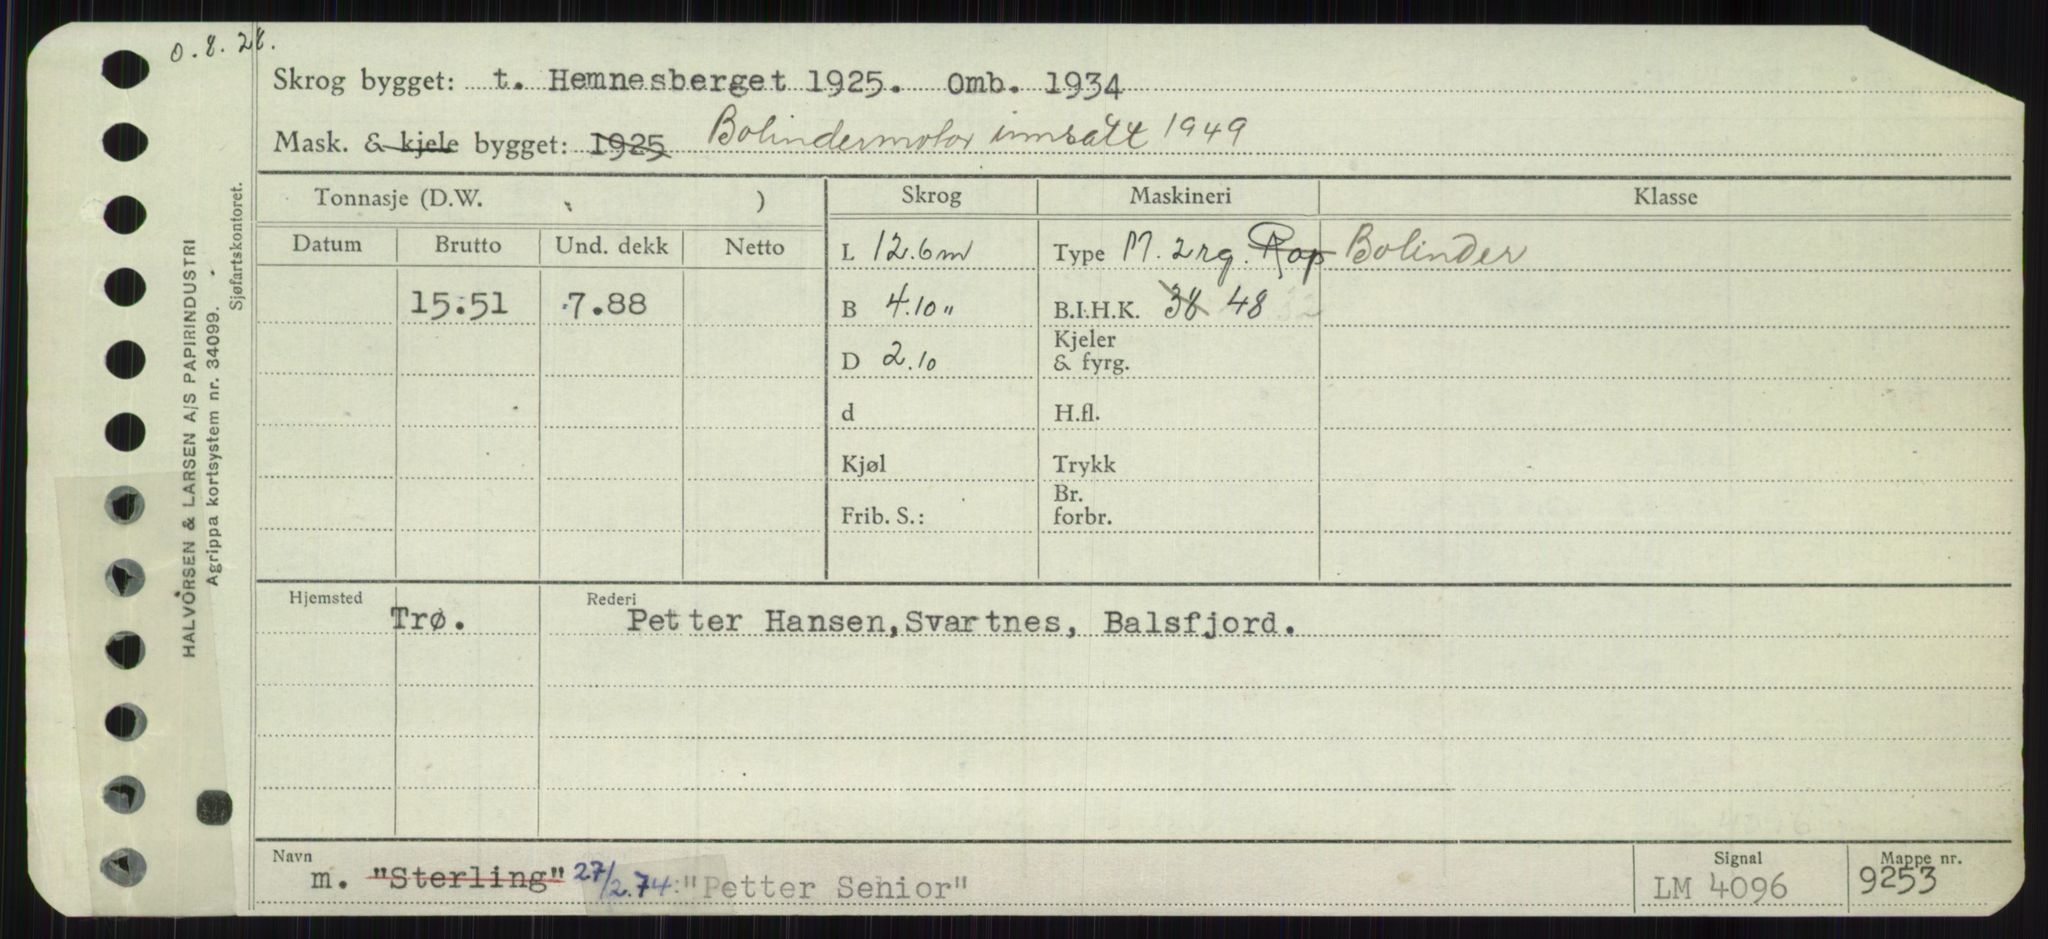 0.8.28.
Skrog bygget: t. Hemnesberget 1925. Omb. 1934
Mask. & kjele bygget: 1925 Bolindermotor innsatt 1949
Tonnasje (D.W. ) Skrog Maskineri Klasse
Datum Brutto Und. dekk Netto
L 12.6m Type M. 2rg. Rap Bolinder
15.51 7.88 B 4.10" B.I.H.K. 38 48
D 2.10 Kjeler
& fyrg.
d H.fl.
Kjøl Trykk
Frib. S.: Br.
forbr.
Hjemsted Rederi
Trø. Petter Hansen, Svartnes, Balsfjord.
Navn Signal Mappe nr.
m. "Sterling" 27/2.74: "Petter Senior" LM 4096 9253
HALVORSEN & LARSEN A/S PAPIRINDUSTRI
Agrippa kortsystem nr. 34099.
Sjøfartskontoret.